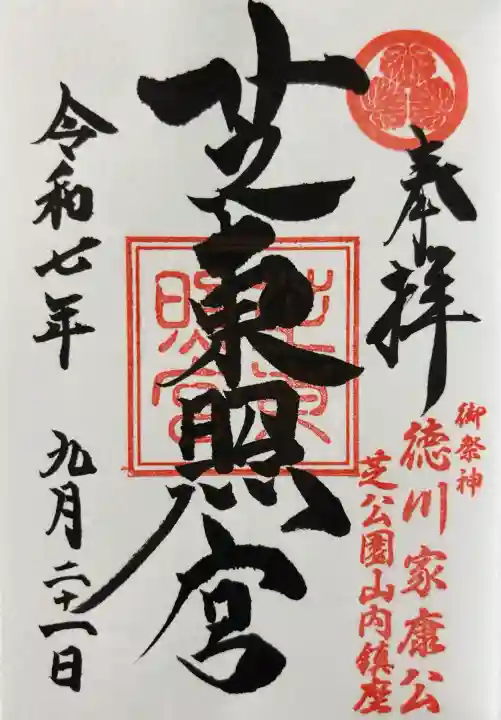 奉拝
御祭神
徳川家康公
芝公園山内鎮座
芝東照宮
芝東照宮
令和七年 九月二十一日